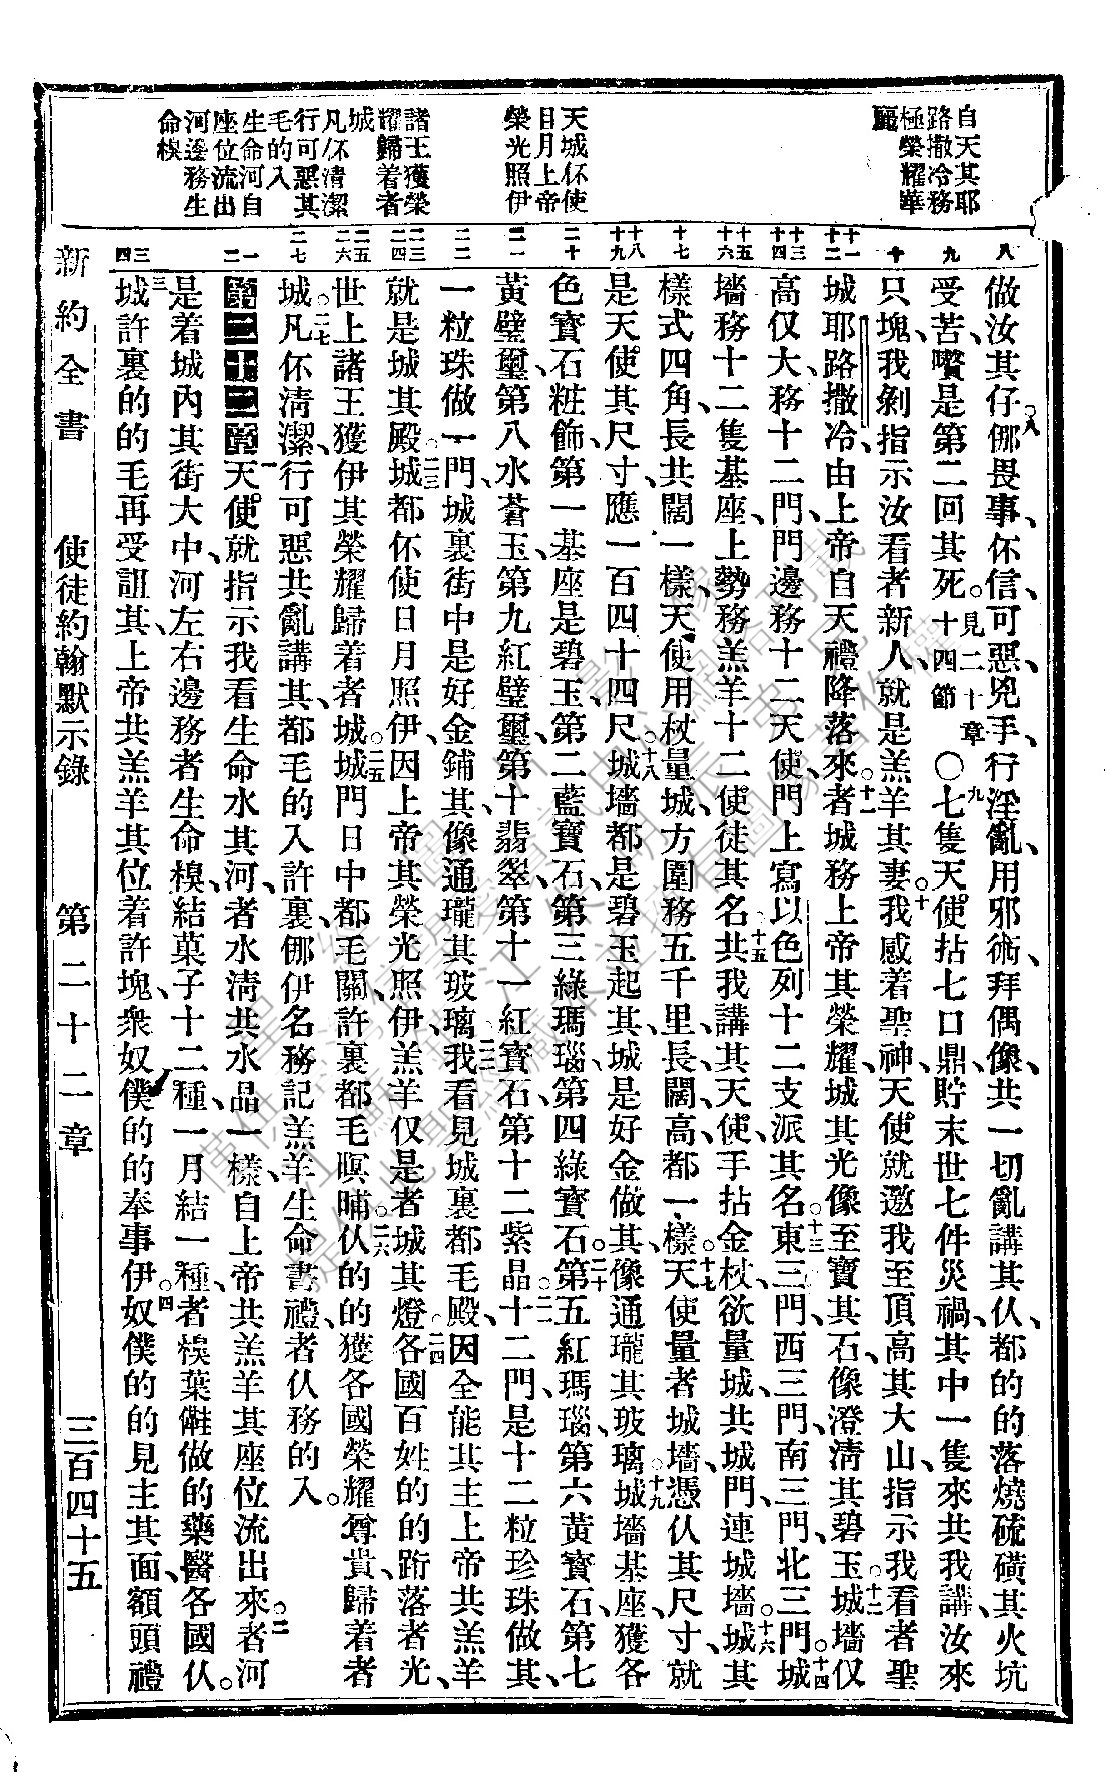 自天其耶
路撒冷務
極榮耀華
麗
天城伓使
日月上帝
榮光照伊
諸王獲榮
耀歸着者
城
凡伓清潔
行可惡其
毛的入
生命河自
座位流出
河邊務生
命樉
八
九
十
十一
十二
十三
十四
十五
十六
十七
十八
十九
二十
二一
二二
二三
二四
二五
二六
二七
一
二
三
四
做汝其仔㑚畏事、伓信、可惡、兇手、行淫亂、用邪術、拜偶像、共一切亂講其仈、都的的落燒硫磺其火坑
受苦、嚽是第二回其死。見二十章十四節〇七隻天使拈七口鼎、貯末世七件災禍、其中一隻來共我講、汝來
只塊、我剝指示汝看者新人、就是羔羊其妻。我感着聖神、天使就邀我至頂高其大山、指示我看者聖
城耶路撒冷、由上帝自天禮降落來。者城務上帝其榮耀、城其光像至寶其石、像澄清其碧玉。城墻仅
高仅大、務十二門、門邊務十二天使、門上寫以色列十二支派其名。東三門、西三門、南三門、北三門。城
墻務十二隻基座、上勢務羔羊十二使徒其名。共我講其天使、手拈金杖、欲量城、共城門、連城墻。城其
樣式四角、長共闊一樣、天使用杖量城、方圍務五千里、長、闊、高、都一樣。天使量者城墻、憑仈其尺寸、就
是天使其尺寸、應一百四十四尺。城墻都是碧玉起其、城是好金做其、像通瓏其玻璃。城墻基座、獲各
色寶石粧飾、第一基座是碧玉、第二藍寶石、第三綠瑪瑙、第四綠寶石。第五紅瑪瑙、第六黃寶石、第七
黃璧璽、第八水蒼玉、第九紅璧璽、第十翡翠、第十一紅寶石、第十二紫晶。十二門、是十二粒珍珠做其、
一粒珠做一門、城裏街中是好金鋪其、像通瓏其玻璃。我看見城裏都毛殿、因全能其主上帝共羔羊
就是城其殿。城都伓使日月照伊、因上帝其榮光照伊、羔羊仅是者城其燈。各國百姓的的跴落者光、
世上諸王獲伊其榮耀歸着者城。城門日中都毛關、許裏都毛暝晡。仈的的獲各國榮耀尊貴歸着者
城。凡伓清潔、行可惡共亂講其、都毛的入許裏、㑚伊名務記羔羊生命書禮、者仈務的入。
第二十二章天使就指示我看生命水其河、者水清共水晶一樣、自上帝共羔羊其座位流出來。者河
是着城內其街大中、河左右邊務者生命樉、結菓子十二種、一月結一種、者樉葉儺做的藥醫各國仈。
城許裏的的毛再受詛其、上帝共羔羊其位着許塊、衆奴僕的的奉事伊。奴僕的的見主其面、額頭禮
新約全書
使徒約翰默示錄
第二十二章
三百四十五